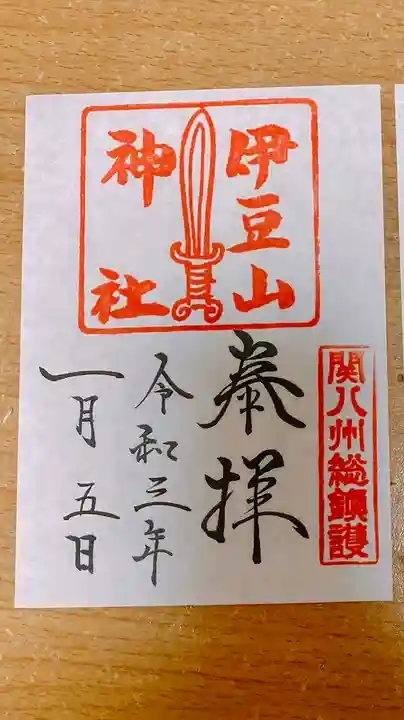 伊豆山
神社
関八州総鎮護
奉拝
令和三年
一月五日